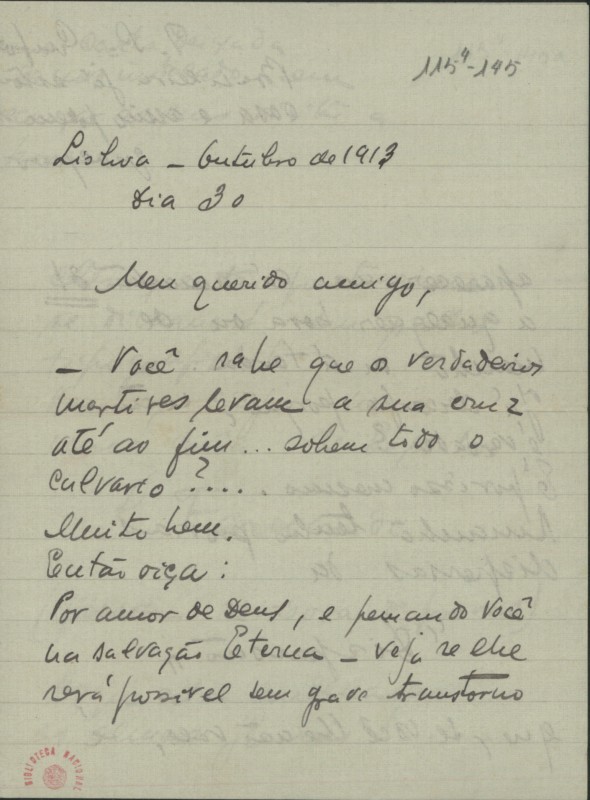 115⁴-145
Lisboa – Outubro de 1913
Dia 30
Meu querido amigo,
– Você sabe que os verdadeiros
martires levam a sua cruz
até ao fim... sobem todo o
calvario?....
Muito bem.
Então oiça:
Por amor de Deus, e pensando Você
na salvação Eterna – veja se lhe
será possivel sem grave transtorno
BIBLIOTECA NACIONAL